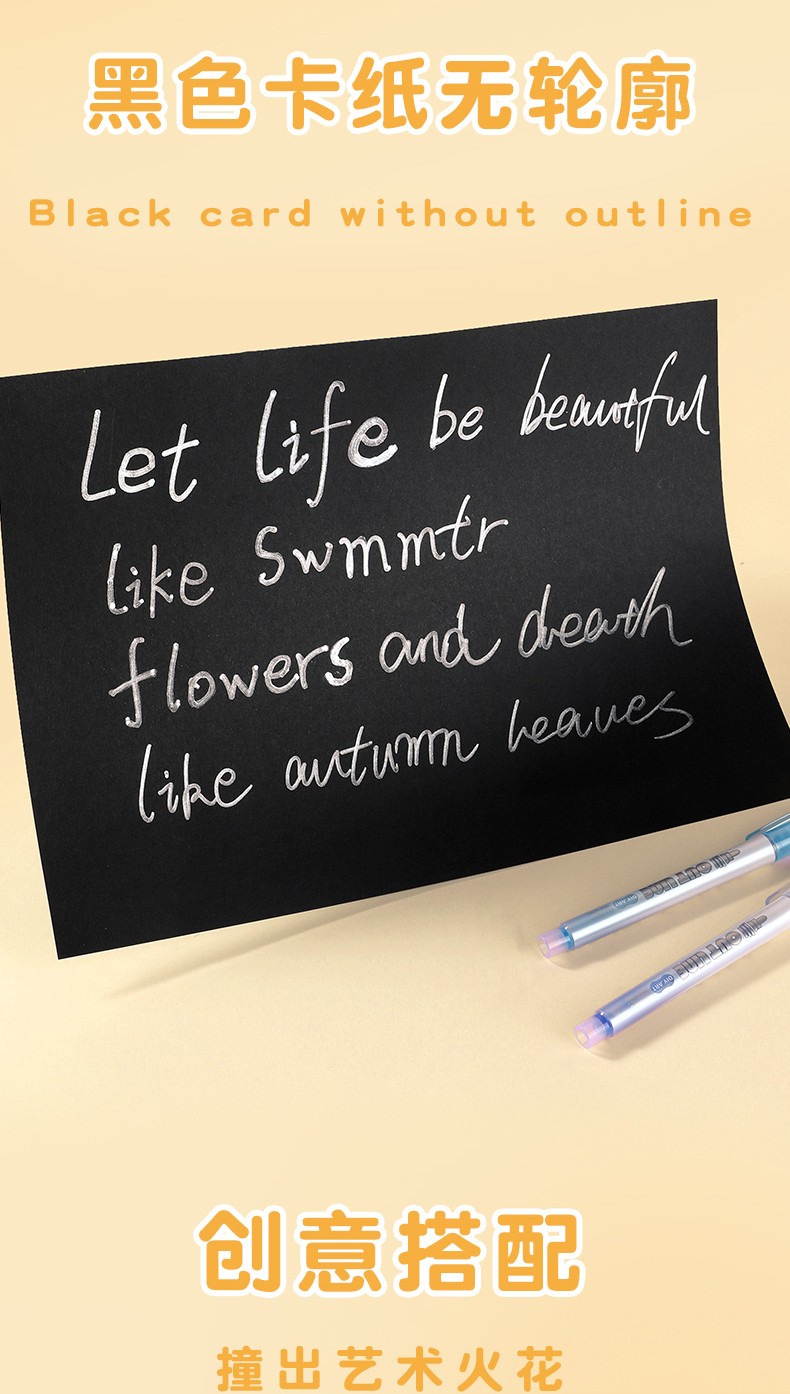 黑色卡纸无轮廓
Black card without outline
Let life be beautiful
like Swmmtr
flowers and death
like autumn leaves
OUT LINE
DIY ART
OUT LINE
DIY ART
创意搭配
撞出艺术火花